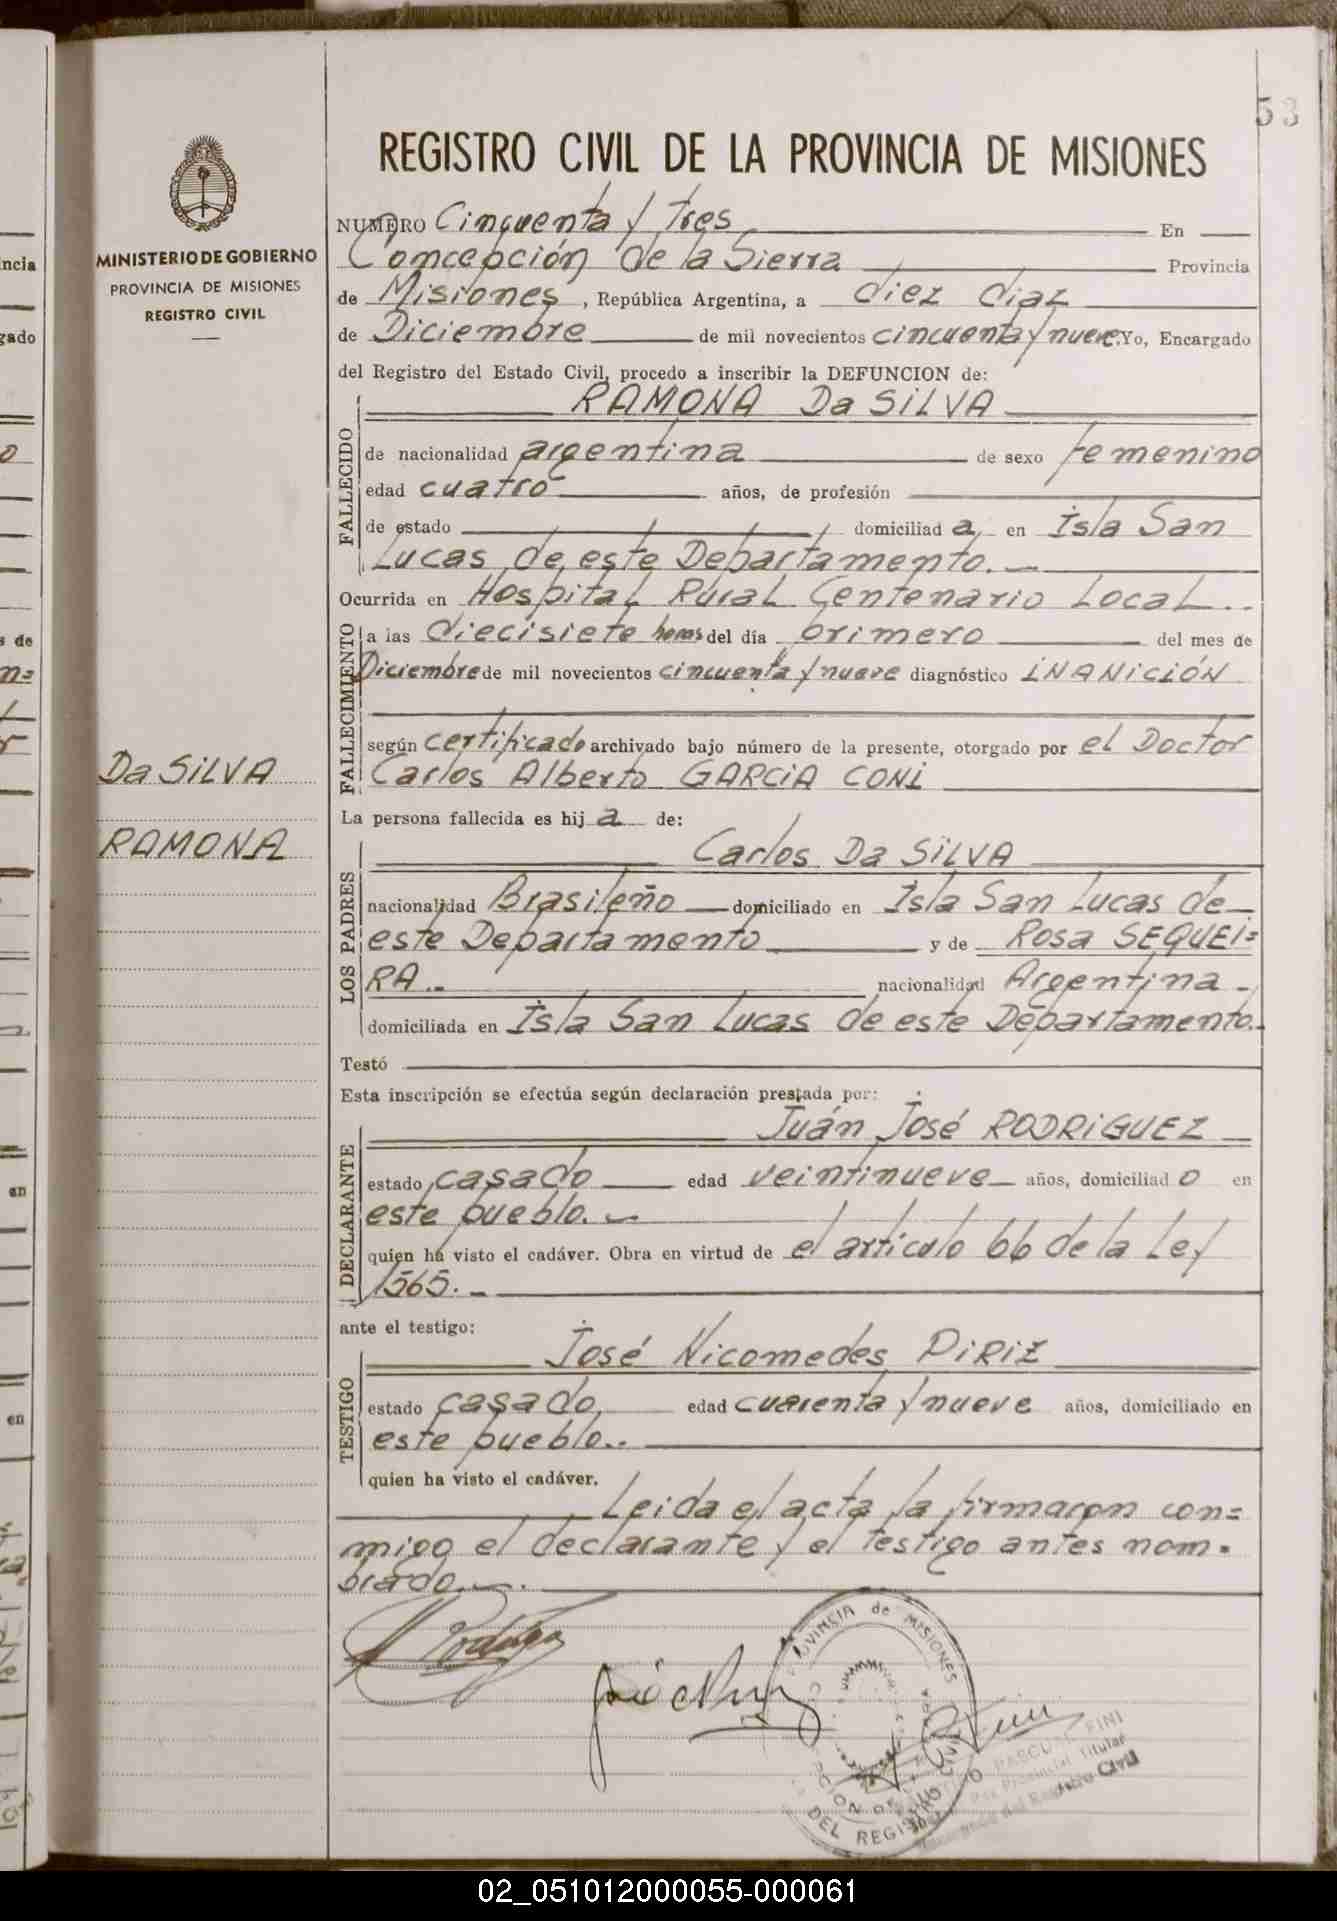 53
REGISTRO CIVIL DE LA PROVINCIA DE MISIONES
MINISTERIO DE GOBIERNO
PROVINCIA DE MISIONES
REGISTRO CIVIL
NUMERO Cincuenta y tres En
Concepción de la Sierra Provincia
de Misiones, República Argentina, a diez dias
de Diciembre de mil novecientos cincuenta y nueve. Yo, Encargado
del Registro del Estado Civil, procedo a inscribir la DEFUNCION de:
RAMONA Da SILVA
FALLECIDO
de nacionalidad argentina de sexo femenino
edad cuatro años, de profesión
de estado domiciliad a en Isla San
Lucas de este Departamento.
Ocurrida en Hospital Rural Centenario Local..
FALLECIMIENTO
a las diecisiete horas del día primero del mes de
Diciembre de mil novecientos cincuenta y nueve diagnóstico INANICIÓN
según certificado archivado bajo número de la presente, otorgado por el Doctor
Carlos Alberto GARCIA CONI
Da SILVA
RAMONA
La persona fallecida es hij a de:
LOS PADRES
Carlos Da SILVA
nacionalidad Brasileño domiciliado en Isla San Lucas de
este Departamento y de Rosa SEQUEI=
RA.- nacionalidad Argentina -
domiciliada en Isla San Lucas de este Departamento.
Testó
Esta inscripción se efectúa según declaración prestada por:
DECLARANTE
Juán José RODRIGUEZ
estado casado edad veintinueve años, domiciliad o en
este pueblo.
quien ha visto el cadáver. Obra en virtud de el artículo 66 de la Ley
1565. -
ante el testigo:
TESTIGO
José Nicomedes PIRIZ
estado casado edad cuarenta y nueve años, domiciliado en
este pueblo..
quien ha visto el cadáver.
Leida el acta la firmaron con=
migo el declarante y el testigo antes nom=
brado.
PROVINCIA de MISIONES
DEL REGISTRO
PASCUAL FINI
Provincial Titular
Encargado del Registro Civil
02_051012000055-000061